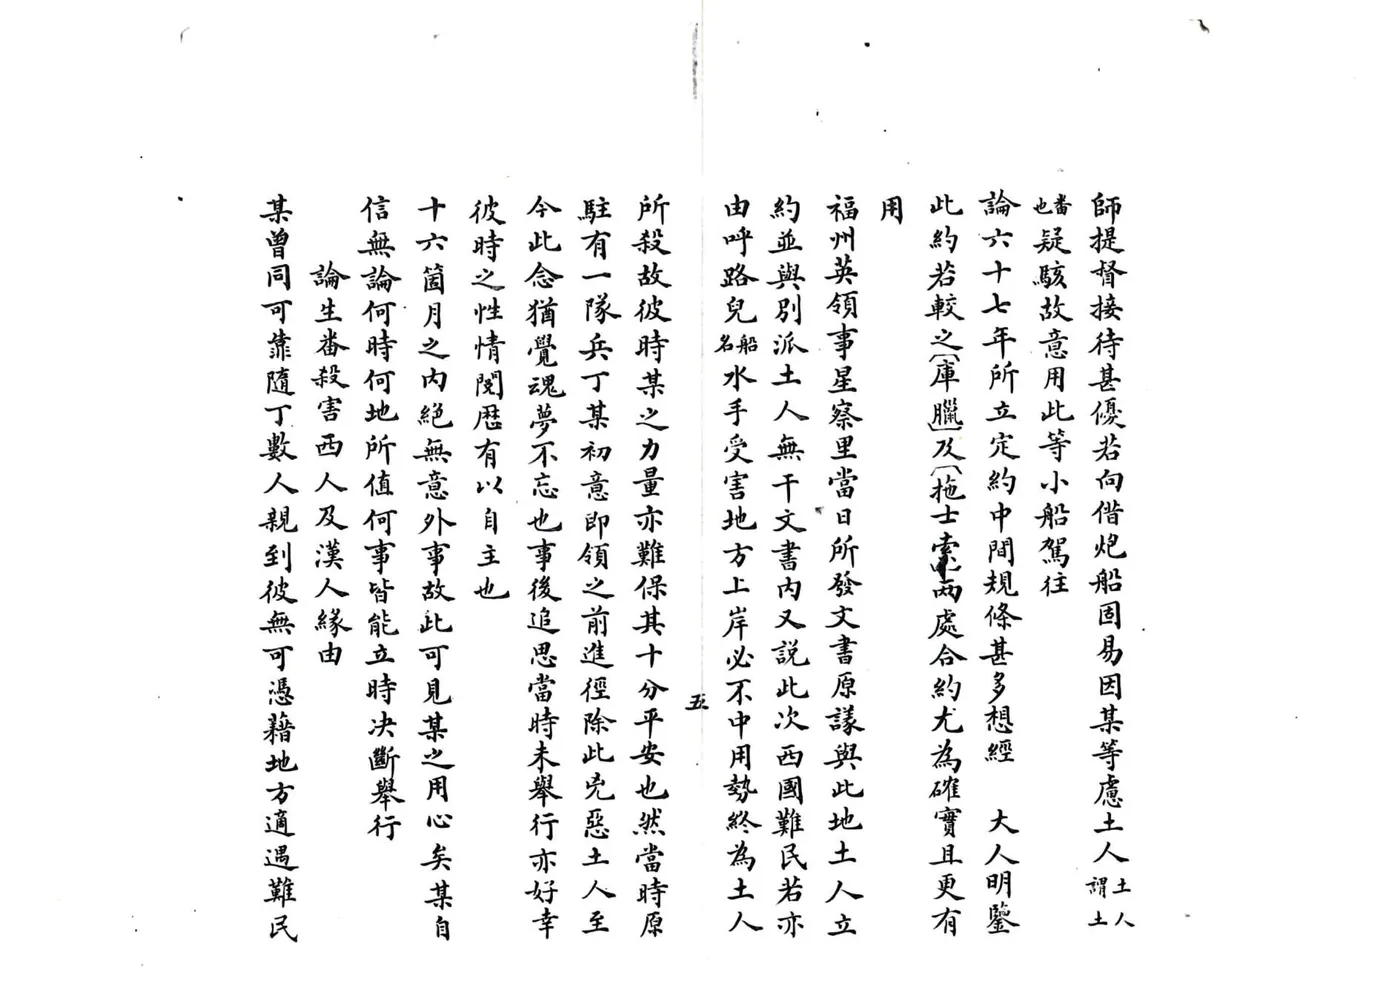 師提督接待甚優若向借炮船固易因某等慮土人土人謂土
番也疑駭故意用此等小船駕往
論六十七年所立定約中間規條甚多想經　大人明鑒
此約若較之〔庫臘〕及〔拖士索〕兩處合約尤為確實且更有
用
福州英領事星察里當日所發文書原議與此地土人立
約並與別派土人無干文書內又説此次西國難民若亦
由呼路兒船名水手受害地方上岸必不中用勢終為土人
五
所殺故彼時某之力量亦難保其十分平安也然當時原
駐有一隊兵丁某初意即領之前進徑除此兇惡土人至
今此念猶覺魂夢不忘也事後追思當時未舉行亦好幸
彼時之性情閱歷有以自主也
十六箇月之內絕無意外事故此可見某之用心矣某自
信無論何時何地所值何事皆能立時決斷舉行
論生番殺害西人及漢人緣由
某曾同可靠隨丁數人親到彼無可憑藉地方適遇難民